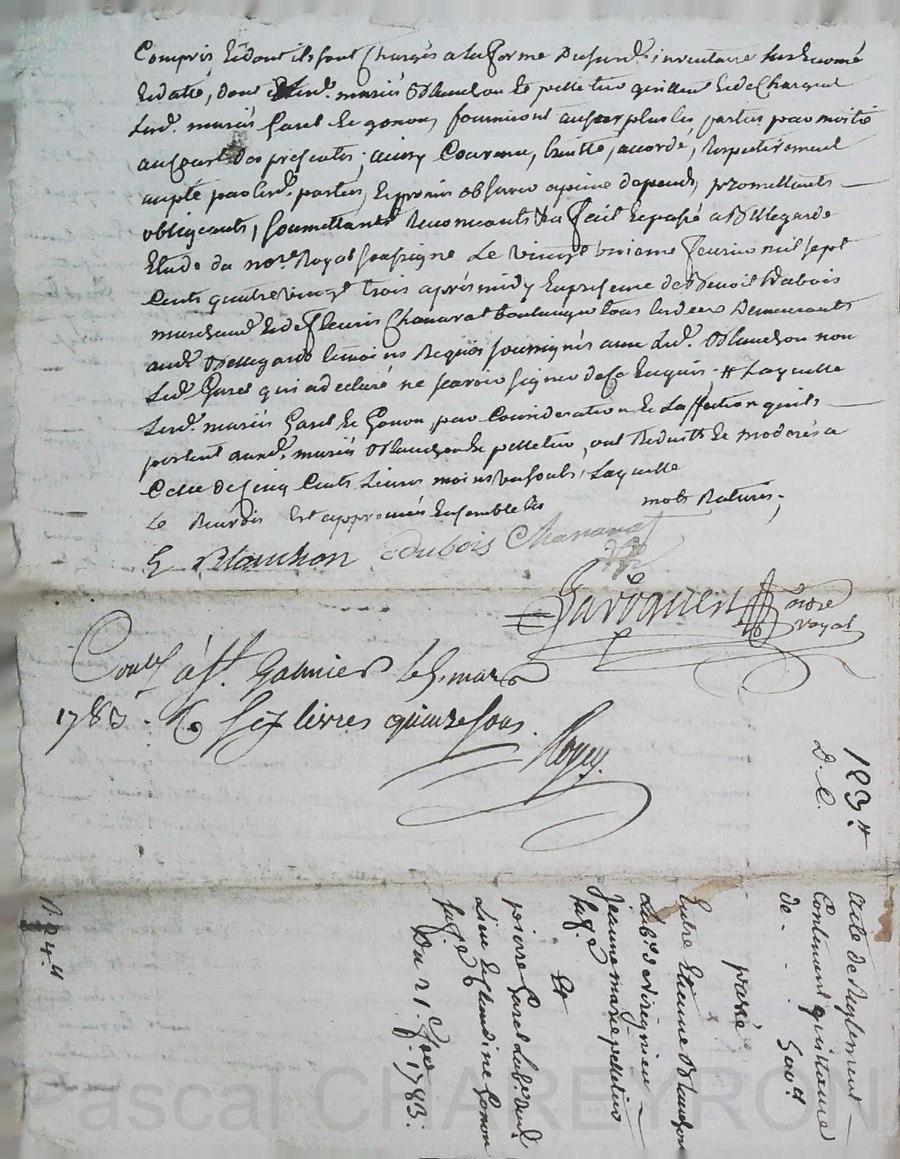 Compris Et dont ils sont Chargés a la forme Dususd. inventaire susEnoncé
Et datté, dont lesd. mariés Blanchon Et pelletier quittent Et de Chargent
Lesd. mariés Garel Et gonon, fourniront au surplus les parties par moitié
aux des presentes; ainsy Convenu, traitté, accordé, Respectivement
accepté par lesd. parties, Et promis observer a peine depends, promettants
obligeants, soumettants Renonceants &a fait Et passé a Bellegarde
Etude du nore. Royal soussigné Le vingt unieme fevrier mil sept
Cents quatre vingt trois aprés midy En presence de Benoit Dubois
marchand Et de fleuris Chanavat boulanger tous les deux Demeurants
aud. Bellegarde temoins Requis soussignés avec Led. Blanchon non
Led. Garel qui a declaré ne sçavoir signer de ce Enquis. # Laquelle
Lesd. mariés Garel Et Gonon par Consideration Et Laffection quils
portent auxd. mariés Blanchon Et pelletier, ont Reduitte Et moderés a
Celle de Cinq Cents Livres moins Laquelle
Le Renvois Est approuvé Ensemble les mots Raturés;
E Blanchon Dubois Chanavat
nore
royal
Conlé à St. Galmier le 5. mars
1783. R. six livres quinze sous.
183.#
D. C.
acte de Reglement
Contenant quittance
de
passé
Entre Etienne Blanchon
Labr.
Jeanne marie pelletier
sa f.e
Et
pierre Garel Labr. dud.
Lieu Et Claudine Gonon
sa f.e
Du 21. fer. 1783.